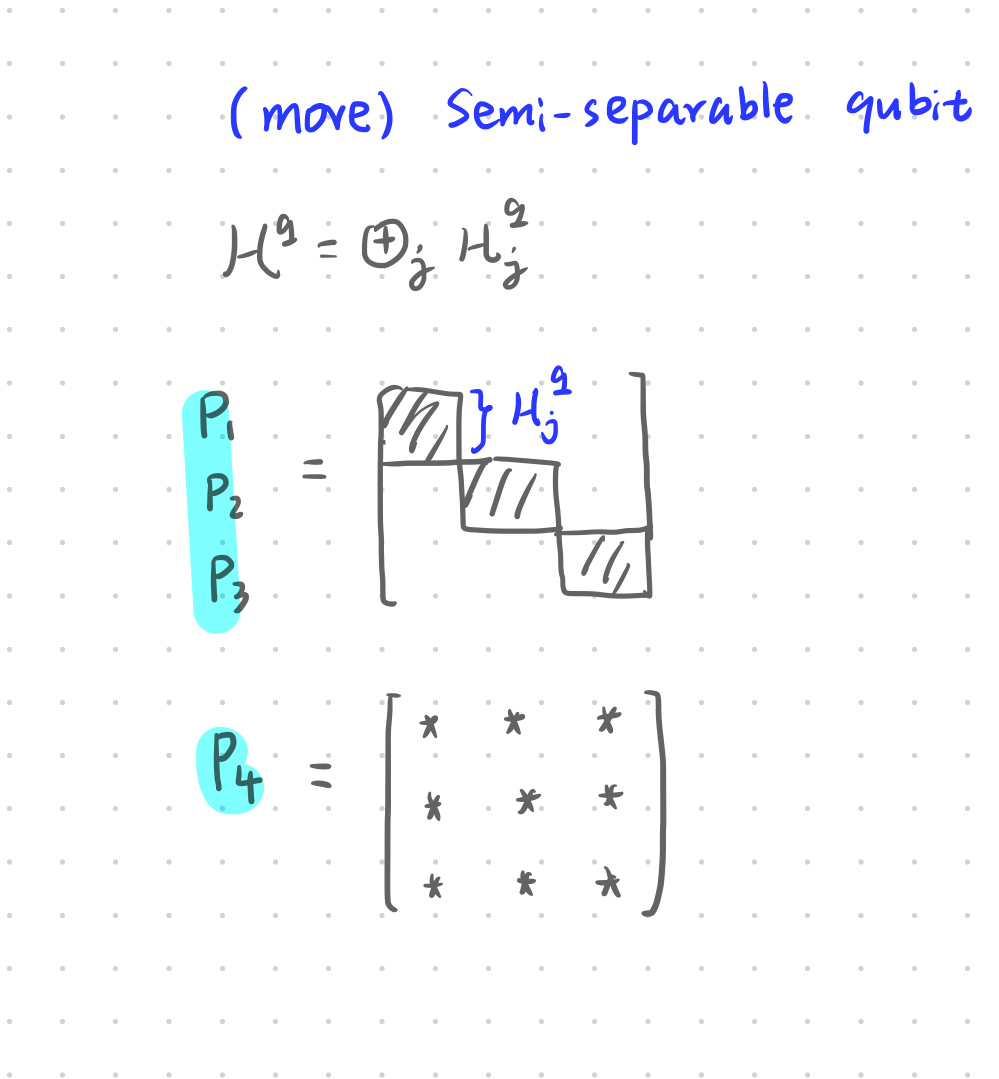 (more) Semi-separable qubit
H^q = ⊕_j H_j^q
P_1
} H_j^q
P_2 =
P_3
P_4 = [ * * *
* * *
* * * ]